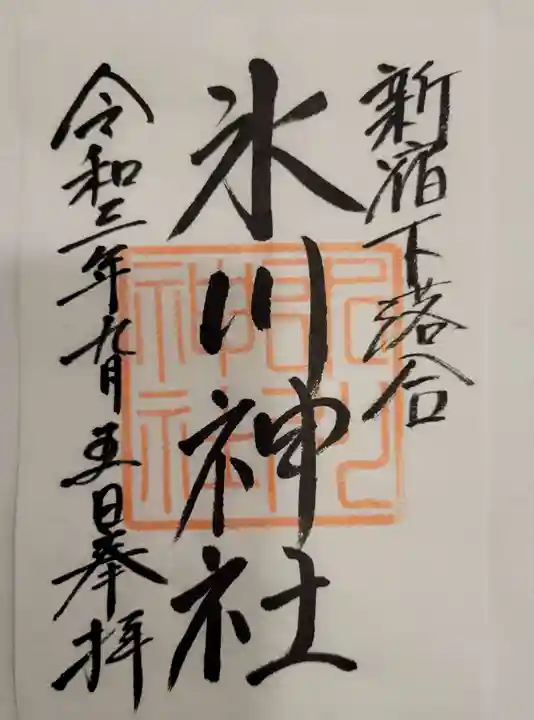 新宿下落合
氷川神社
令和三年九月五日奉拝